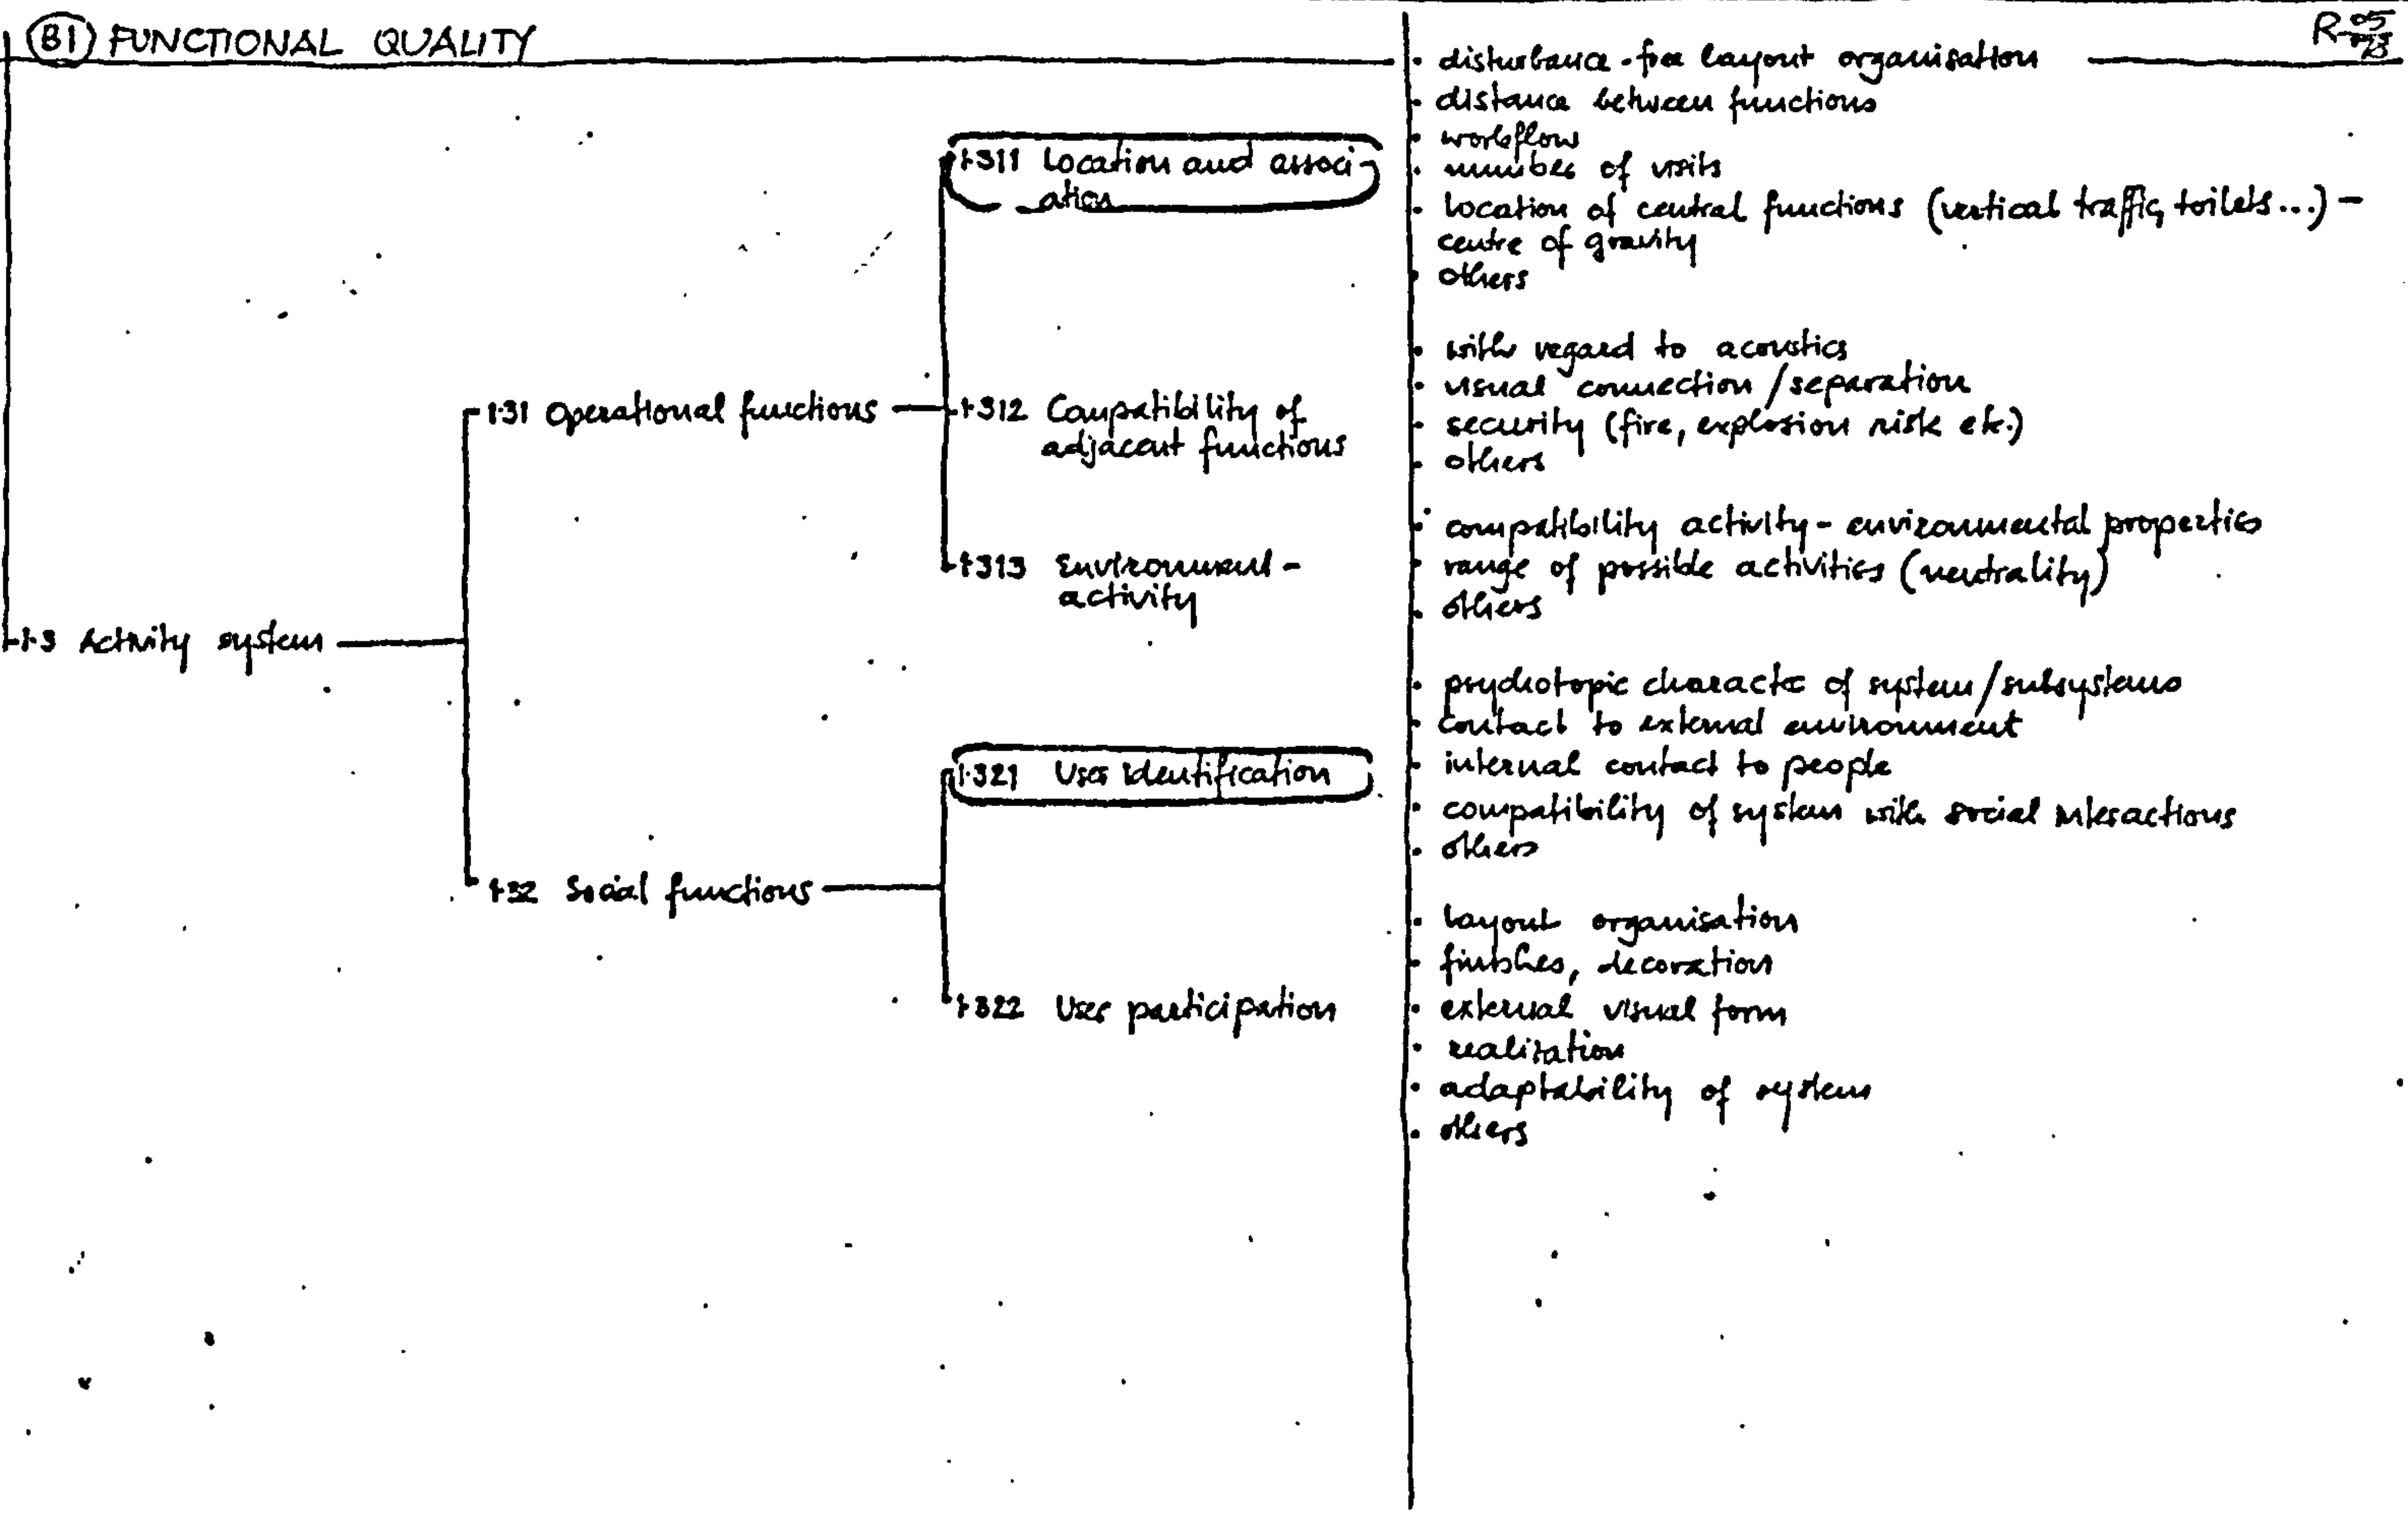 B1 FUNCTIONAL QUALITY
1.3 Activity system
1.31 Operational functions
1.311 Location and associ-
ation
1.312 Compatibility of
adjacent functions
1.313 Environment-
activity
1.32 Social functions
1.321 User identification
1.322 User participation
• disturbance-free layout organisation
• distance between functions
• workflow
• number of visits
• location of central functions (vertical traffic, toilets...) -
centre of gravity
• others
• with regard to acoustics
• visual connection / separation
• security (fire, explosion risk etc.)
• others
• compatibility activity - environmental properties
• range of possible activities (neutrality)
• others
• psychotopic character of system / subsystems
• contact to external environment
• internal contact to people
• compatibility of system with social interactions
• others
• layout organisation
• finishes, decoration
• external visual form
• realization
• adaptability of system
• others